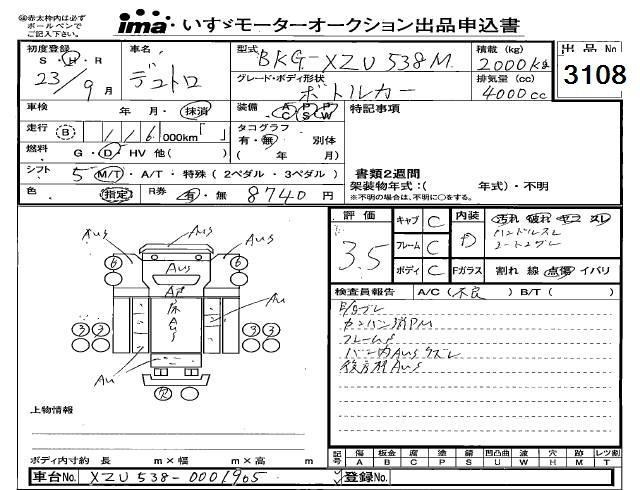 ㊟赤太枠内は必ず
ボールペンで
ご記入下さい。
ima いすゞモーターオークション出品申込書
初度登録 車名 型式 BKG-XZU538M 積載 (kg) 出品No
S・H・R デュトロ グレード・ボディ形状 2000kg 3108
23/9月 ボトルカー 排気量 (cc)
4000cc
車検 年・月・抹消 装備 AC PS PW 特記事項
走行 B 116 000km「 」 タコグラフ
有・無 別体
燃料 G・D・HV 他( ) ( 年 月) 書類2週間
シフト 5 M/T・A/T・特殊(2ペダル・3ペダル) 架装物年式:( 年式)・不明
色 指定 R券 有・無 8740円 ※不明の場合は、不明に○をする。
評価 3.5 キャブ C 内装 D 汚れ 破れ コゲ スレ
フレーム C ハンドルスレ
ボディ C Fガラス 割れ 線 点傷 イバリ
検査員報告 A/C(不良) B/T( )
Aus Aus
6 Aus 6
Aus
Au
3 3 3 3
Au
上物情報
ボディ内寸約 長 m×幅 m×高 m
記号 傷 板金 腐 塗 錆 凹凸曲 波 穴 跡 レツ割
A B C P S U W H M T
車台No. XZU538-0001905 登録No.